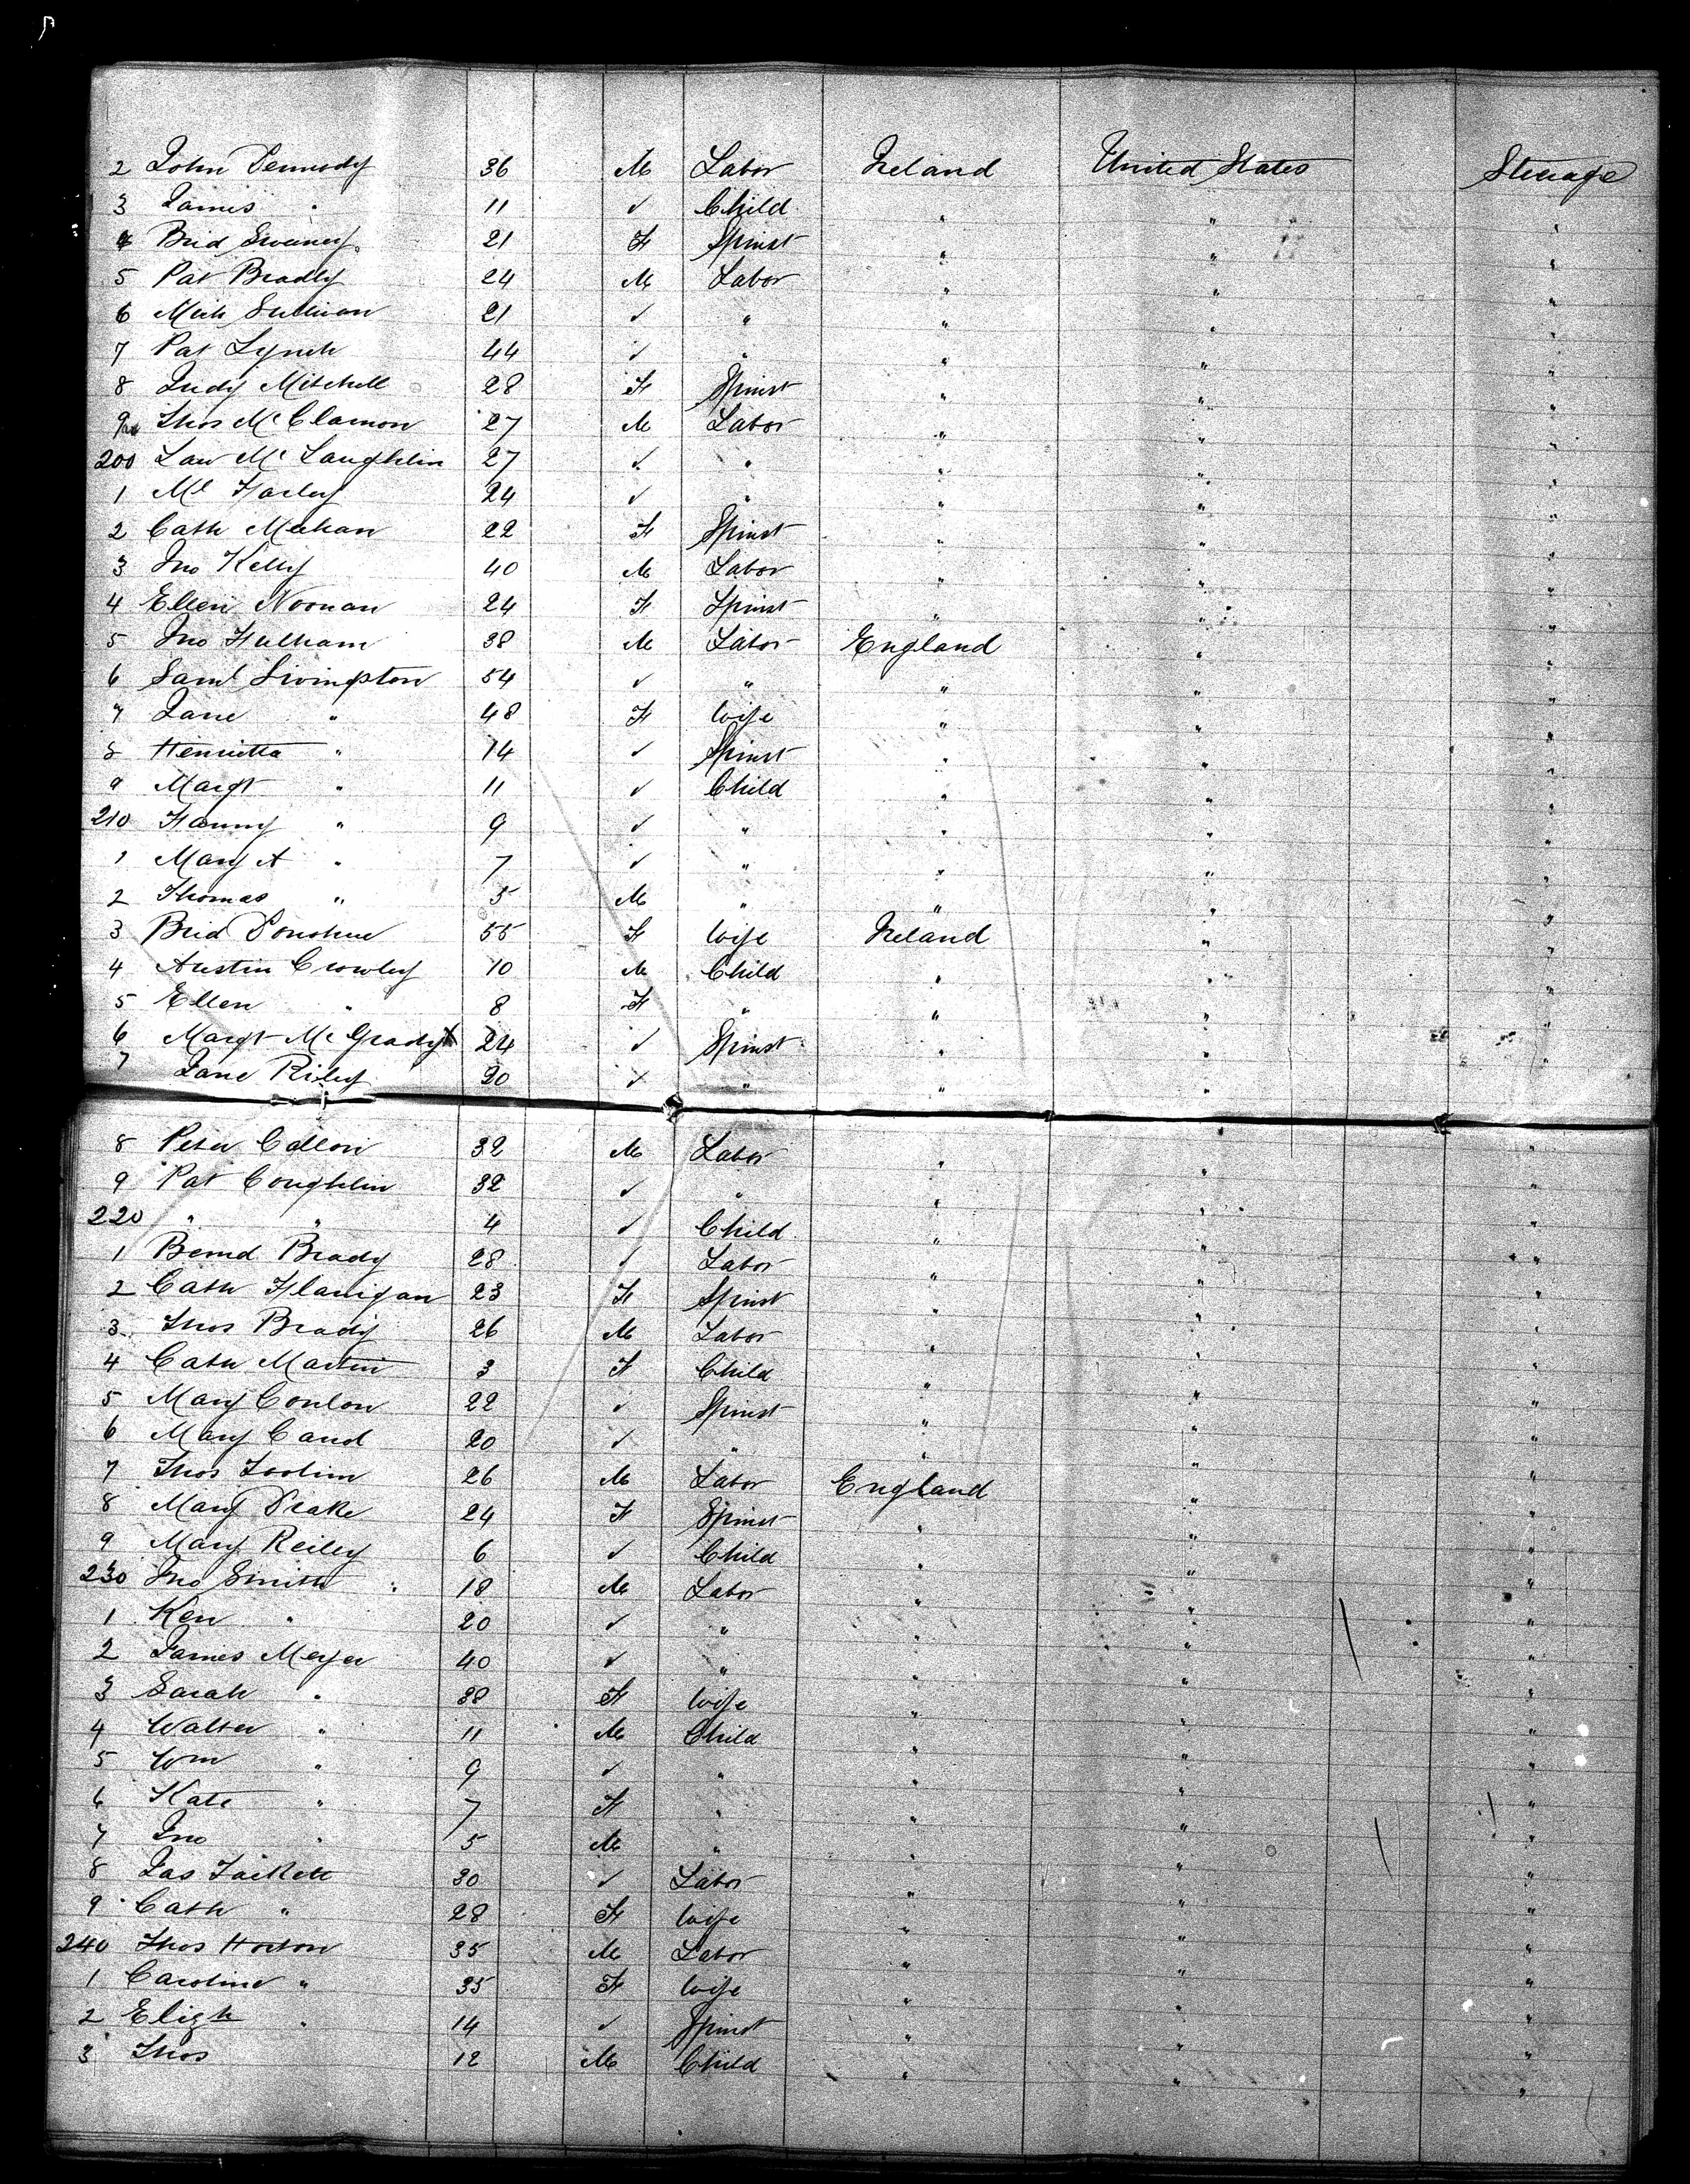 2 John Kennedy 36 M Labor Ireland United States Steerage
3 James " 11 ✓ Child " " "
4 Brid Sweeney 21 F Spinst " " "
5 Pat Bradly 24 M Labor " " "
6 Mich Sullivan 21 ✓ " " " "
7 Pat Lynch 44 ✓ " " " "
8 Judy Mitchell 28 F Spinst " " "
9 Thos Mc 27 M Labor " " "
200 Law Mc Laughlin 27 ✓ " " " "
1 Ml Farley 24 ✓ " " " "
2 Cath Mehan 22 F Spinst " " "
3 Jno Kelly 40 M Labor " " "
4 Ellen Noonan 24 F Spinst " " "
5 Jno Fulham 38 M Labor England " "
6 Saml Livingston 54 ✓ " " " "
7 Jane " 48 F wife " " "
8 Henrietta " 14 ✓ Spinst " " "
9 Margt " 11 ✓ Child " " "
210 Fanny " 9 ✓ " " " "
1 Mary A " 7 ✓ " " " "
2 Thomas " 5 M " " " "
3 Brid Donohue 55 F wife Ireland " "
4 Austin Crowley 10 M Child " " "
5 Ellen " 8 F " " " "
6 Margt Mc Grady X 24 ✓ Spinst " " "
7 Jane Riley 20 ✓ " " " "
8 Peter 32 M Labor " " "
9 Pat Coughlin 32 ✓ " " " "
220 " " 4 ✓ Child " " "
1 Bernd Brady 28 ✓ Labor " " "
2 Cath Flanigan 23 F Spinst " " "
3 Thos Brady 26 M Labor " " "
4 Cath Martin 3 F Child " " "
5 Mary Conlon 22 ✓ Spinst " " "
6 Mary 20 ✓ " " " "
7 Thos 26 M Labor England " "
8 Mary Drake 24 F Spinst " " "
9 Mary Reiley 6 ✓ Child " " "
230 Jno Smith 18 M Labor " " "
1 Ken " 20 ✓ " " " "
2 James Meyer 40 ✓ " " " "
3 Sarah " 38 F wife " " "
4 Walter " 11 M Child " " "
5 Wm " 9 ✓ " " " "
6 Kate " 7 F " " " "
7 Jno " 5 M " " " "
8 Jas 30 ✓ Labor " " "
9 Cath " 28 F wife " " "
240 Thos Horton 35 M Labor " " "
1 Caroline " 35 F wife " " "
2 Elizh " 14 ✓ Spinst " " "
3 Thos 12 M Child " " "